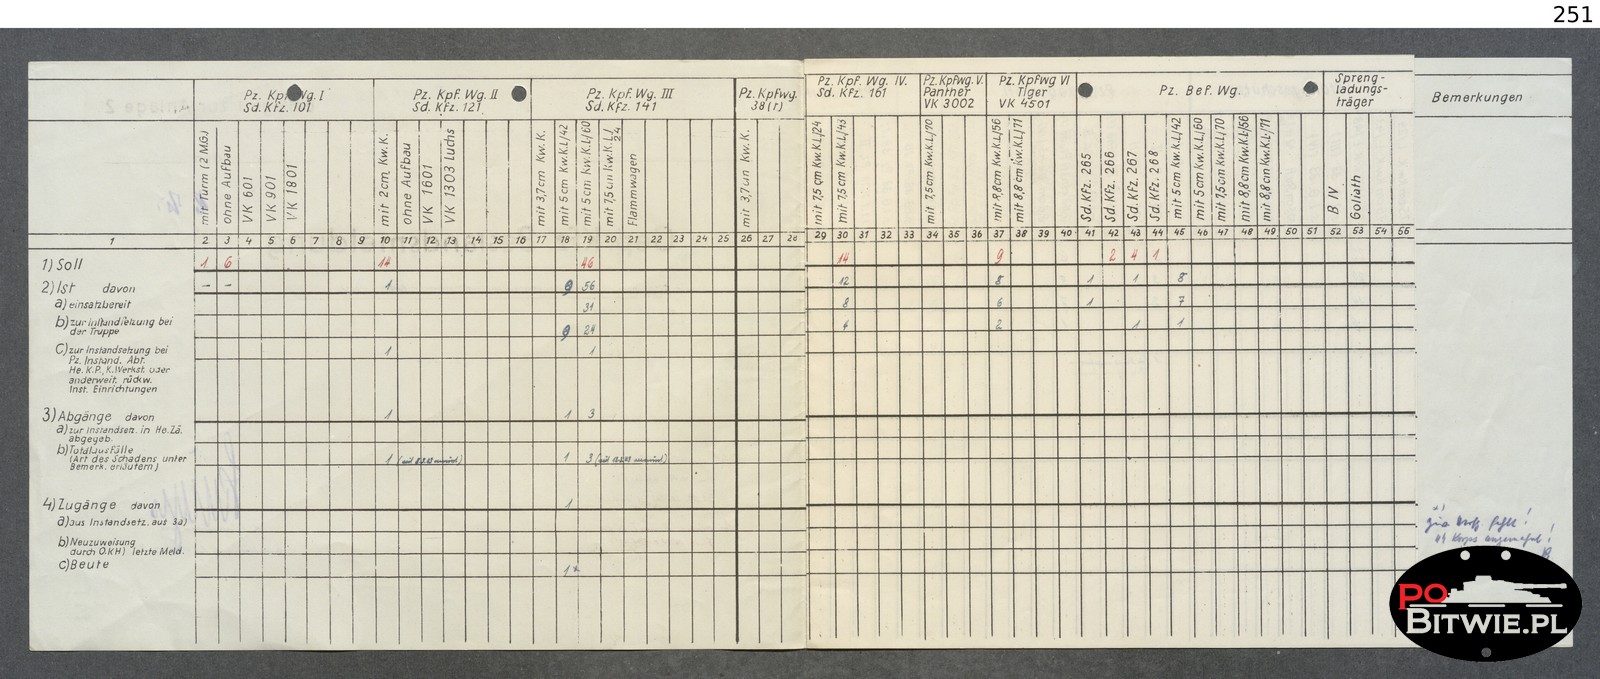 251
Pz. Kpf. Wg. I
Sd. Kfz. 101
Pz. Kpf. Wg. II
Sd. Kfz. 121
Pz. Kpf. Wg. III
Sd. Kfz. 141
Pz. Kpfwg.
38(t)
Pz. Kpf. Wg. IV.
Sd. Kfz. 161
Pz. Kpfwg. V.
Panther
VK 3002
Pz. Kpfwg VI
Tiger
VK 4501
Pz. Bef. Wg.
Spreng-
ladungs-
träger
Bemerkungen
mit Turm (2 MG)
ohne Aufbau
VK 601
VK 901
VK 1801
mit 2cm Kw.K.
ohne Aufbau
VK 1601
VK 1303 Luchs
mit 3,7cm Kw. K.
mit 5 cm Kw.K.L/42
mit 5cm Kw.K.L/60
mit 7,5cm Kw.K.L/24
Flammwagen
mit 3,7cm Kw. K.
mit 7,5 cm Kw.K.L/24
mit 7,5cm K.w.K.L/43
mit 7,5cm Kw.K.L/70
mit 8,8cm Kw.K.L/56
mit 8,8 cm Kw.K.L/71
Sd. Kfz. 265
Sd. Kfz. 266
Sd. Kfz. 267
Sd. Kfz. 268
mit 5 cm Kw.K.L/42
mit 5cm Kw.K.L/60
mit 7,5cm Kw.K.L/70
mit 8,8cm Kw.K.L/56
mit 8,8cm Kw.K.L/71
B IV
Goliath
1 2 3 4 5 6 7 8 9 10 11 12 13 14 15 16 17 18 19 20 21 22 23 24 25 26 27 28 29 30 31 32 33 34 35 36 37 38 39 40 41 42 43 44 45 46 47 48 49 50 51 52 53 54 55
1) Soll 1 6 14 46 14 9 2 4 1
2) Ist davon – – 1 9 56 12 8 1 1 8
a) einsatzbereit 31 8 6 1 7
b) zur Instandsetzung bei
der Truppe 9 24 4 2 1 1
c) zur Instandsetzung bei 1 1
Pz. Instand. Abt.
He. K.P., K.Werkst. oder
anderweit. rückw.
Inst. Einrichtungen
3) Abgänge davon 1 1 3
a) zur Instandset. in He. Zä.
abgegeb.
b) Totalausfälle
(Art des Schadens unter 1 1 3
Bemerk. erläutern)
4) Zugänge davon 1
a) aus Instandsetz. aus 3a)
b) Neuzuweisung
durch O.K.H) letzte Meld.
c) Beute 1*
PO
BITWIE.PL